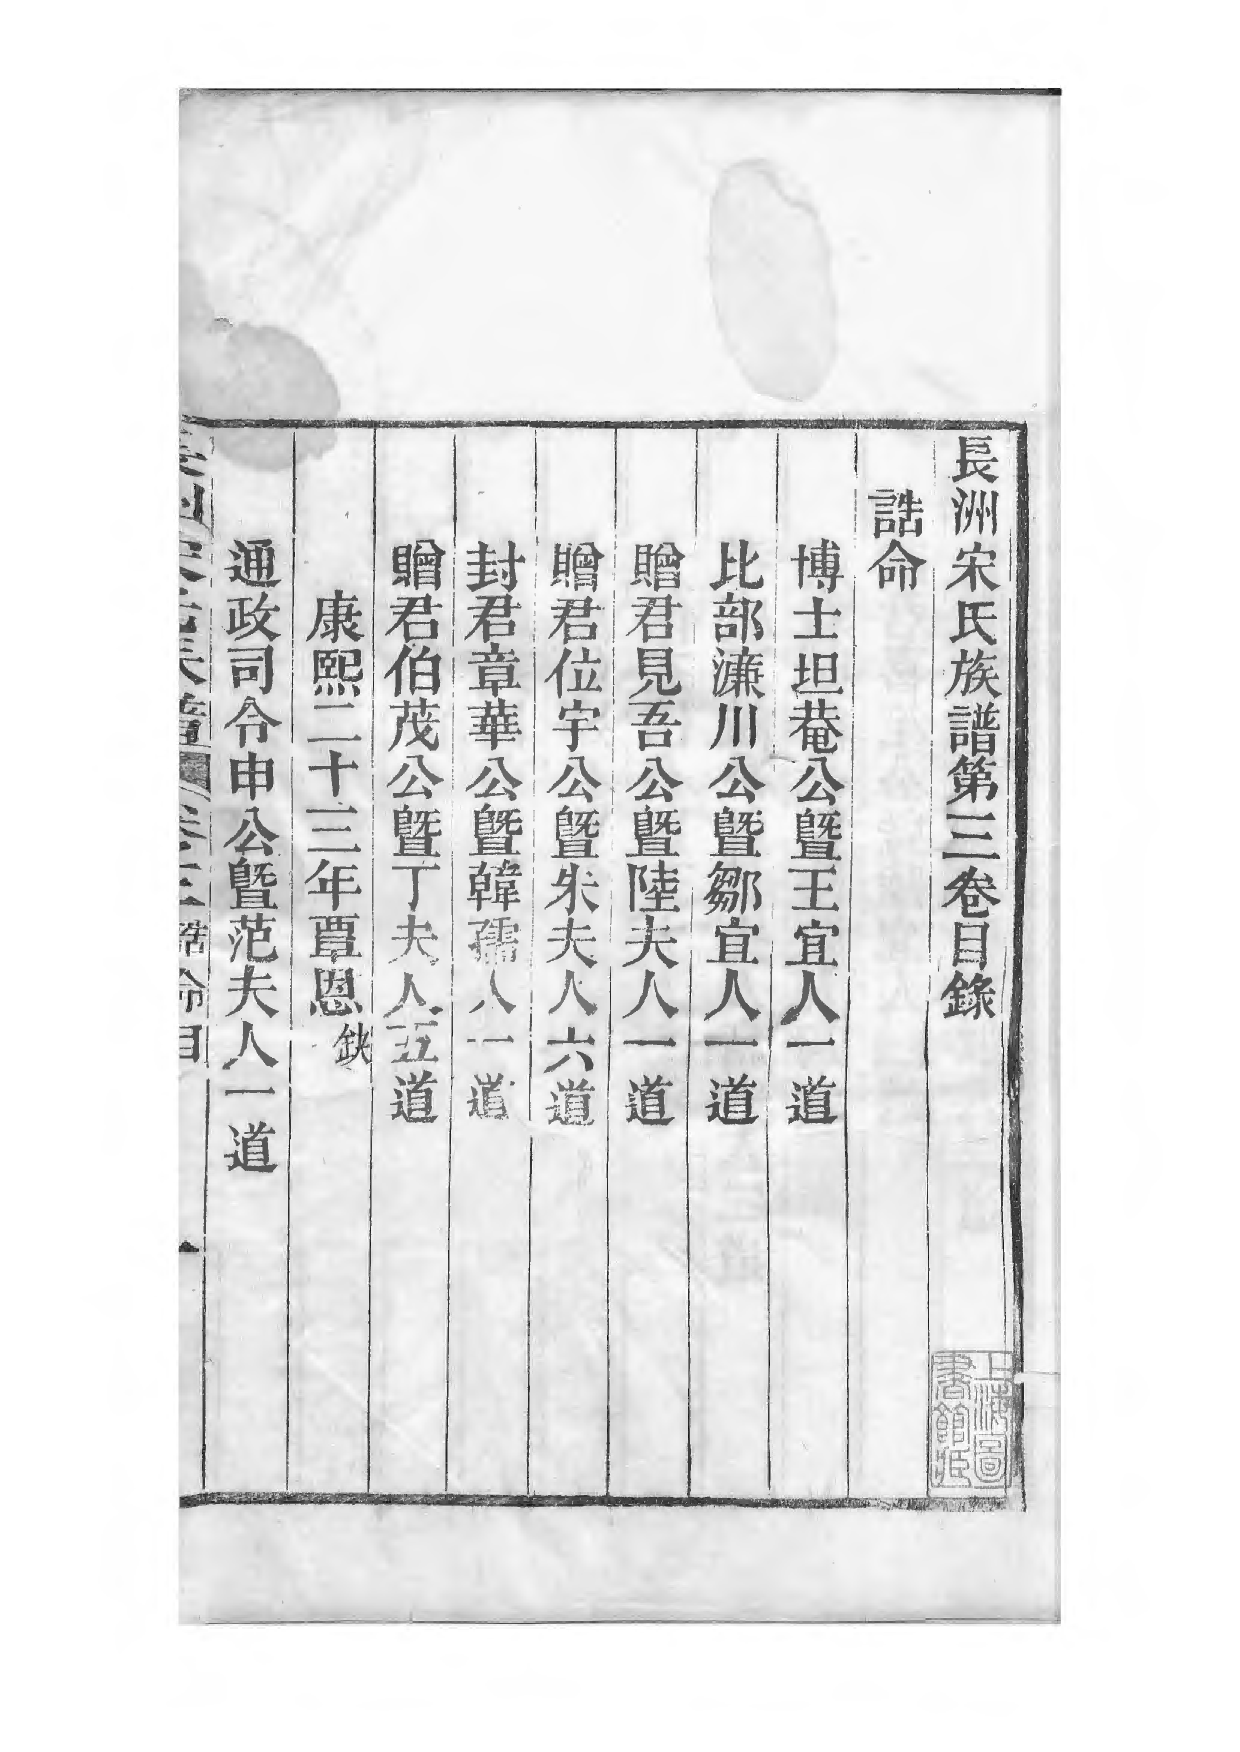 長洲宋氏族譜第三卷目錄
誥命
博士坦菴公暨王宜人一道
比部濂川公暨鄒宜人一道
贈君見吾公暨陸夫人一道
贈君位宇公暨朱夫人六道
封君章華公暨韓孺人一道
贈君伯茂公暨丁夫人五道
康熙二十三年覃恩缺
通政司令申公暨范夫人一道
長洲宋氏族譜 卷三 誥命目 一
上海圖書館藏